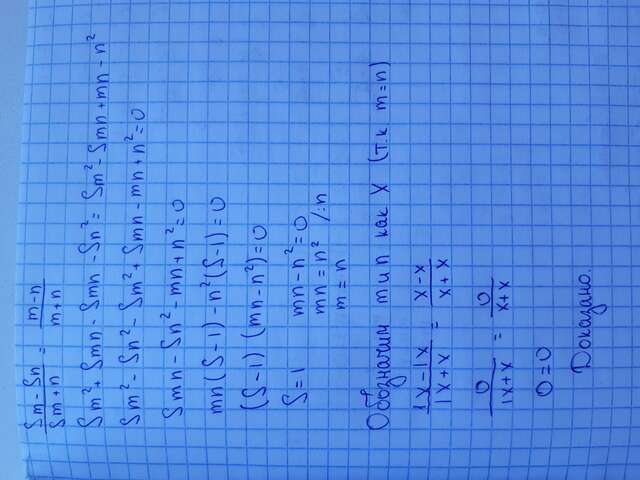 Sm-Sn/Sm+n = m-n/m+n
Sm²+Smn-Smn-Sn²=Sm²-Smn+mn-n²
Sm²-Sn²-Sm²+Smn-mn+n²=0
Smn-Sn²-mn+n²=0
mn(S-1)-n²(S-1)=0
(S-1)(mn-n²)=0
S=1 mn-n²=0
mn=n² /:n
m=n
Обозначим m и n как X (т.к m=n)
1x-1x/1x+x = x-x/x+x
0/1x+x = 0/x+x
0=0
Доказано.